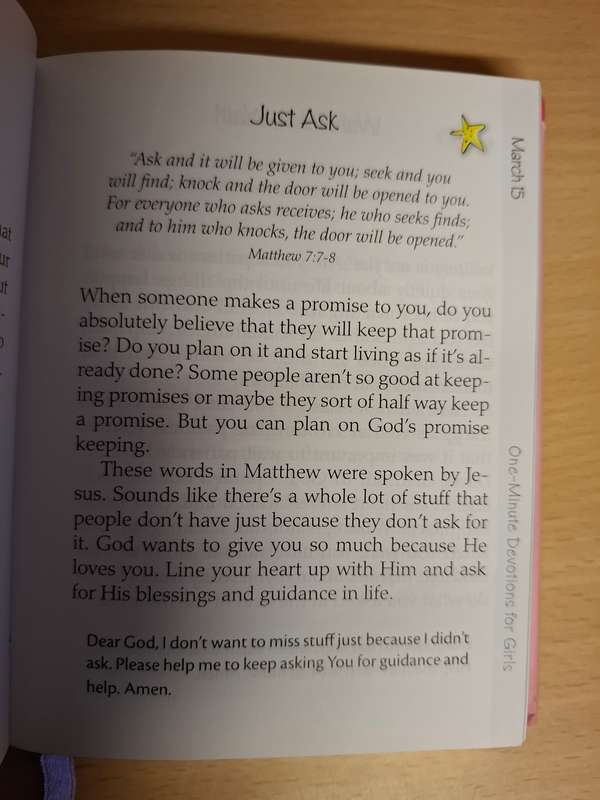 Just Ask
"Ask and it will be given to you; seek and you
will find; knock and the door will be opened to you.
For everyone who asks receives; he who seeks finds;
and to him who knocks, the door will be opened."
Matthew 7:7-8
When someone makes a promise to you, do you
absolutely believe that they will keep that prom-
ise? Do you plan on it and start living as if it's al-
ready done? Some people aren't so good at keep-
ing promises or maybe they sort of half way keep
a promise. But you can plan on God's promise
keeping.
These words in Matthew were spoken by Je-
sus. Sounds like there's a whole lot of stuff that
people don't have just because they don't ask for
it. God wants to give you so much because He
loves you. Line your heart up with Him and ask
for His blessings and guidance in life.
Dear God, I don't want to miss stuff just because I didn't
ask. Please help me to keep asking You for guidance and
help. Amen.
March 15
One-Minute Devotions for Girls